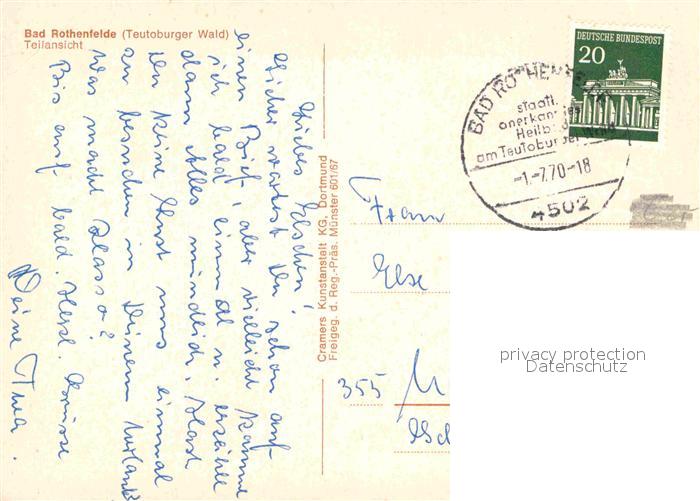 Bad Rothenfelde (Teutoburger Wald)
Teilansicht
Liebes Elschen!
Sicher wartest Du schon auf
einen Brief, aber vielleicht komme
ich bald einmal u. erzähle
dann Alles mündlich. Hast
Du keine Lust uns einmal
zu besuchen in Deinem Urlaub?
Was macht Hasso?
Bis auf bald. Herzl. Grüsse
Deine
Cramers Kunstanstalt KG, Dortmund
Freigeg. d. Reg.-Präs. Münster 601/67
DEUTSCHE BUNDESPOST
20
BAD ROTHENFELDE
staatl.
anerkanntes
Heilbad
am Teutoburger Wald
-1.-7.70-18
4502
Frau
Else
355 M
privacy protection
Datenschutz